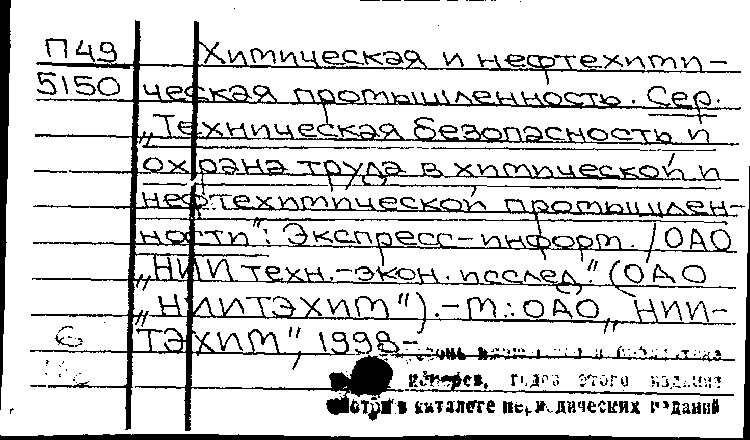 П49 Химическая и нефтехими-
5150 ческая промышленность. Сер.
„Техническая безопасность и
охрана труда в химической и
нефтехимической промышлен-
ности": Экспресс-информ. / ОАО
„НИИ техн.-экон. исслед." (ОАО
„НИИТЭХИМ"). - М.: ОАО „НИИ-
ТЭХИМ", 1998-
номеров, годов этого издания
смотри в каталоге периодических изданий